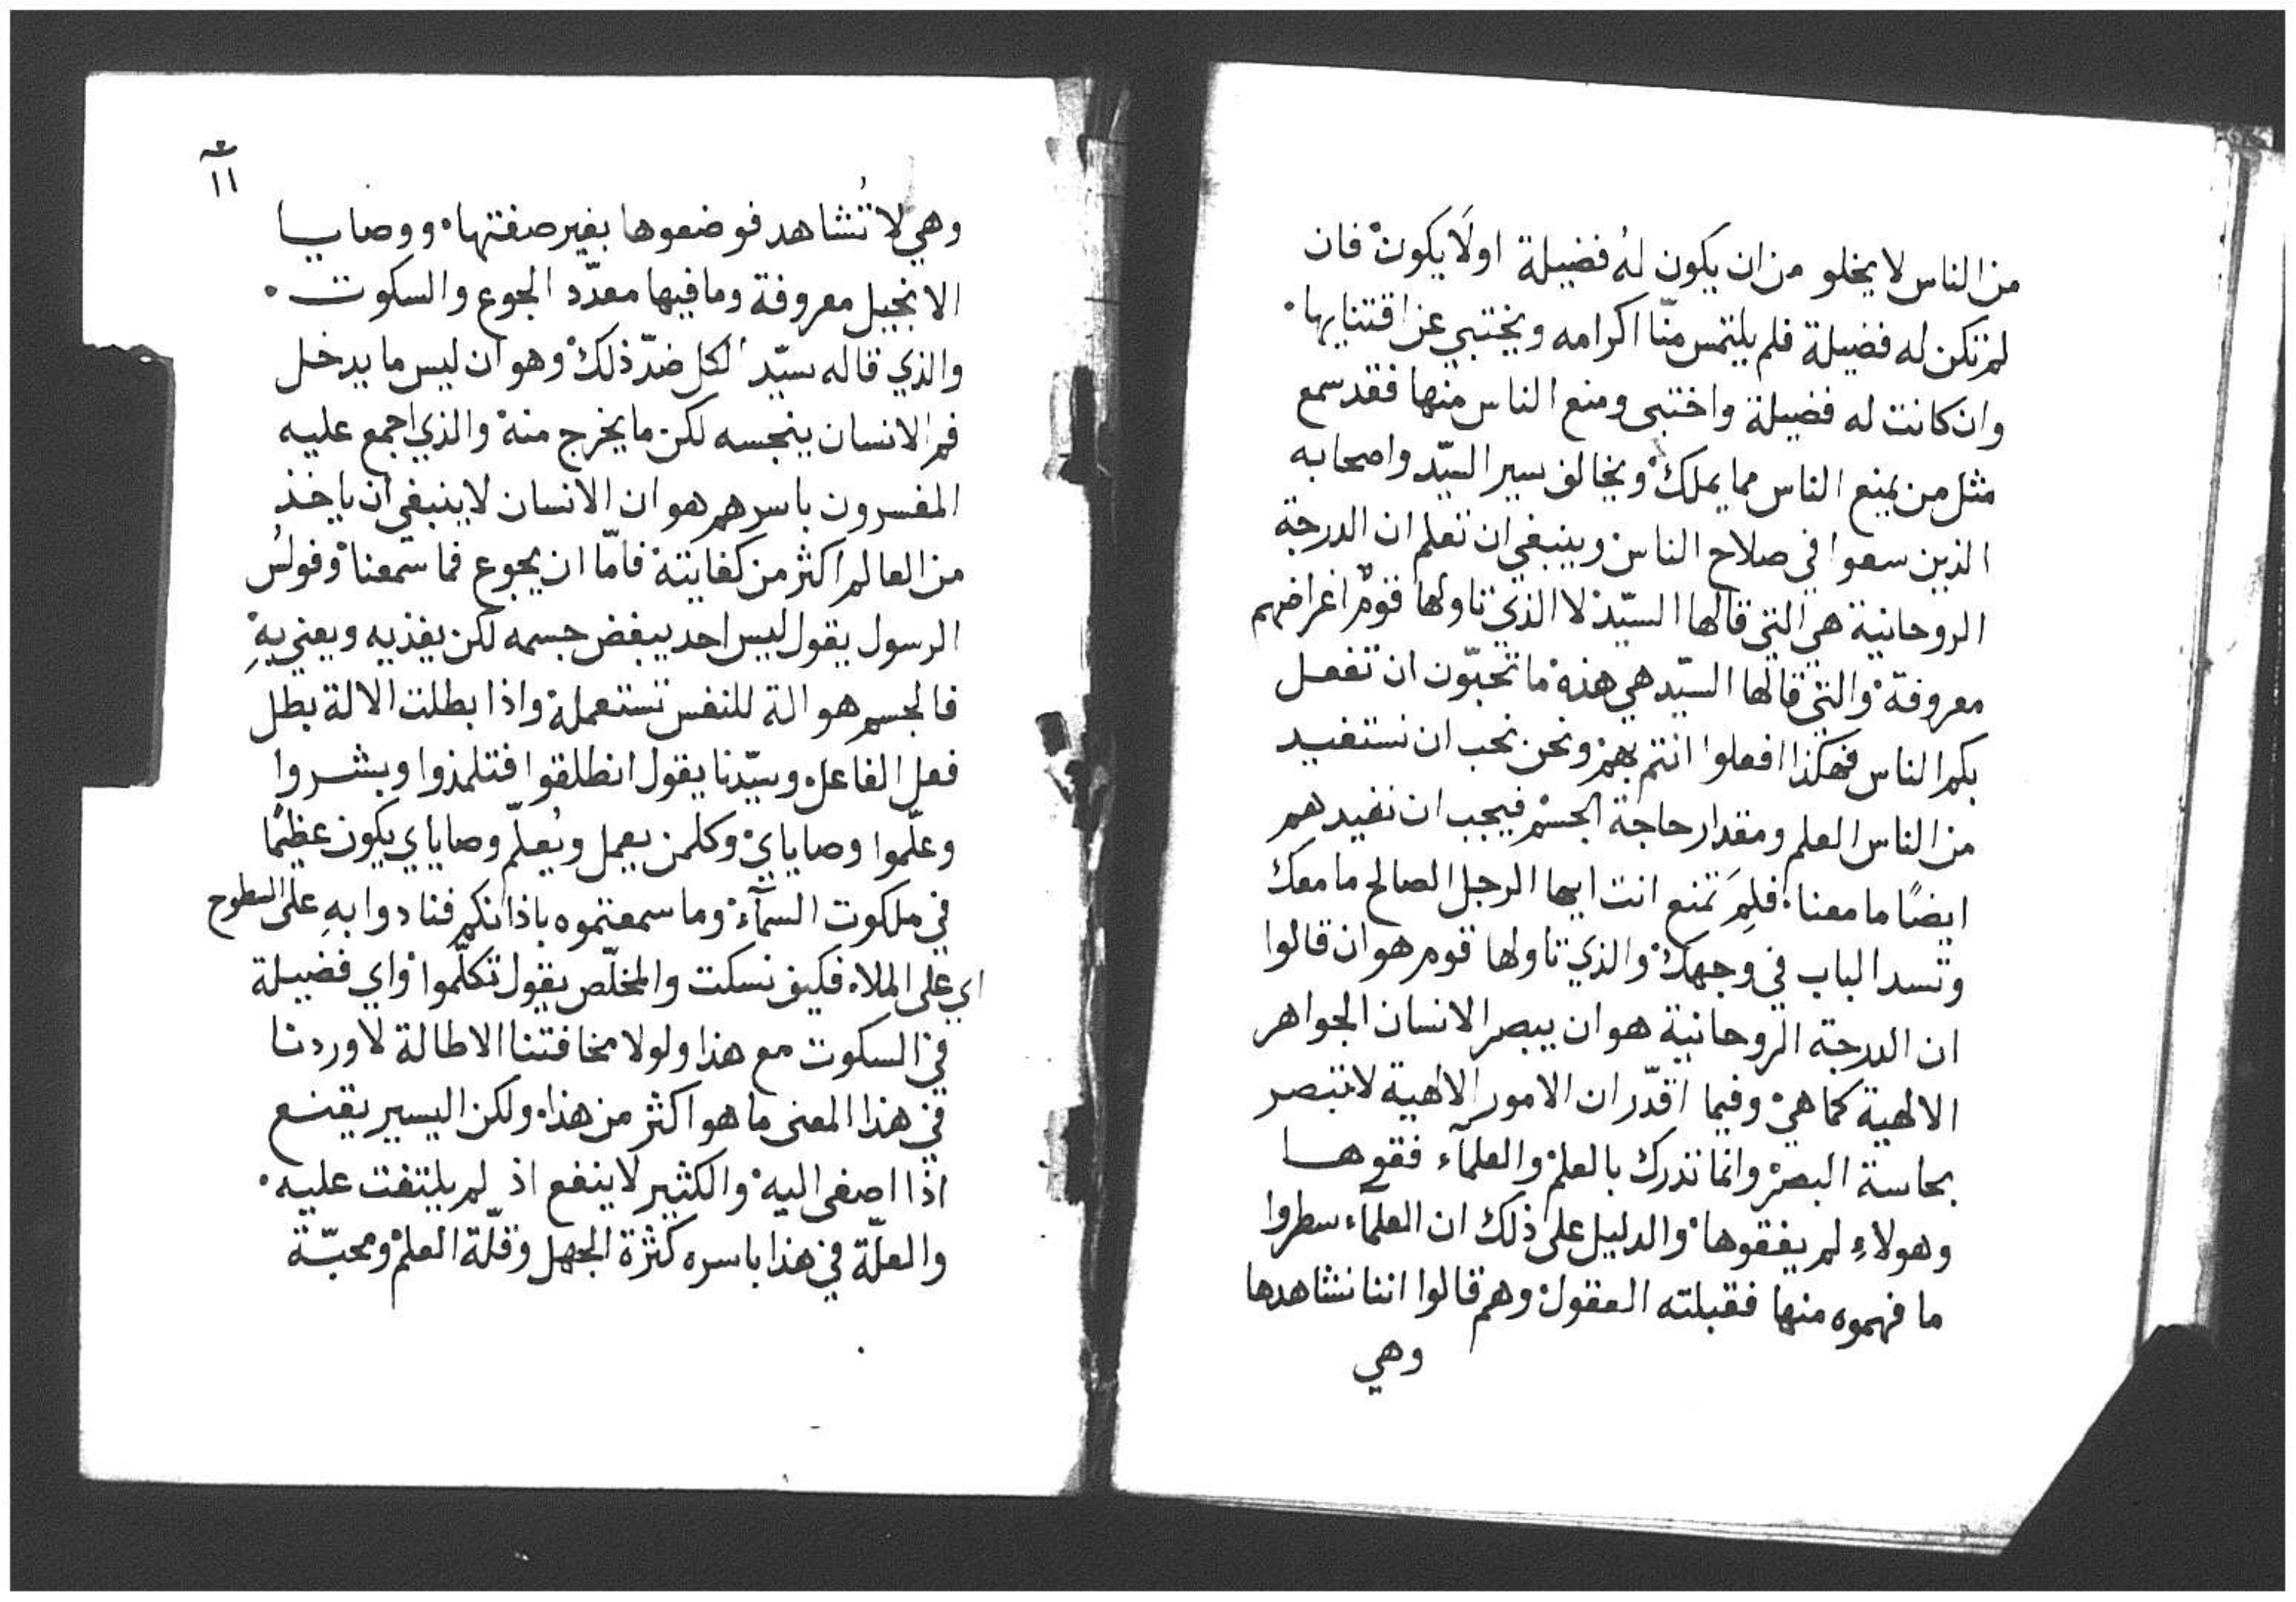 من الناس لا يخلو من ان يكون لهُ فضيلة اولَا يكون۟ فان
لم تكن له فضيلة فلم يلتمس منّا اكرامه ويختبي عن اقتنايها۰
وان كانت له فضيلة واختبى ومنع الناس منها فقد سمع
مثل من يمنع الناس مما يملك۟ ويخالف سير السيّد واصحابه
الذين سعوا في صلاح الناس۟ وينبغي ان تعلم ان الدرجة
الروحانية هي التي قالها السيّد۟ لا الذي تاولها قوم۟ اغراضهم
معروفة۟ والتي قالها السيّد هي هذه۟ ما تحبّون ان تفعل
بكم الناس فهكذا افعلوا انتم بهم۟ ونحن نحب ان نستفيد
من الناس العلم ومقدار حاجة الجسم۟ فيجب ان نفيدهم
ايضًا ما معنا۰ فلِمَ تمنع انت ايها الرجل الصالح ما معك
وتسد الباب في وجهك۟ والذي تاولها قوم هو ان قالوا
ان الدرجة الروحانية هو ان يبصر الانسان الجواهر
الالهية كما هي۟ وفيما اقدّر ان الامور الالاهية لا تبصر
بحاسة البصر۟ وانما تدرك بالعلم۟ والعلمآء فقوها
وهولاءِ لم يفقوها۟ والدليل على ذلك ان العلمآء سطروا
ما فهموه منها فقبلته العقول۟ وهم قالوا اننا نشاهدها
وهي
١١
وهي لا تُشاهد فوضعوها بغير صفتها۰ ووصايا
الانجيل معروفة وما فيها معدّد الجوع والسكوت۰
والذي قاله سيّد الكل ضدّ ذلك۟ وهو ان ليس ما يدخل
فم الانسان ينجسه لكن ما يخرج منه۟ والذي اجمع عليه
المفسرون باسرهم هو ان الانسان لا ينبغي ان ياخذ
من العالم اكثر من كفايته۟ فامّا ان يجوع فما سمعنا۟ وفولُس
الرسول يقول ليس احد يبغض جسمه لكن يغذيه ويعني بهِ۟
فالجسم هو الة للنفس تستعملهُ۟ واذا بطلت الالة بطل
فعل الفاعل۰ وسيّدنا يقول انطلقوا فتلمذوا وبشروا
وعلّموا وصاياي۟ وكلمن يعمل ويُعلّم وصاياي يكون عظيمًا
في ملكوت السمآء۟ وما سمعتموه باذانكم فنادوا بهِ على السطوح
اي على الملاء۰ فكيف نسكت والمخلّص يقول تكلّموا۟ واي فضيلة
في السكوت مع هذا ولولا مخافتنا الاطالة لاوردنا
في هذا المعنى ما هو اكثر من هذا۰ ولكن اليسير يقنع
اذا اصغى اليه۟ والكثير لا ينفع اذ لم يلتفت عليه۰
والعلّة في هذا باسره كثرة الجهل وقلّة العلم۟ ومحبّة